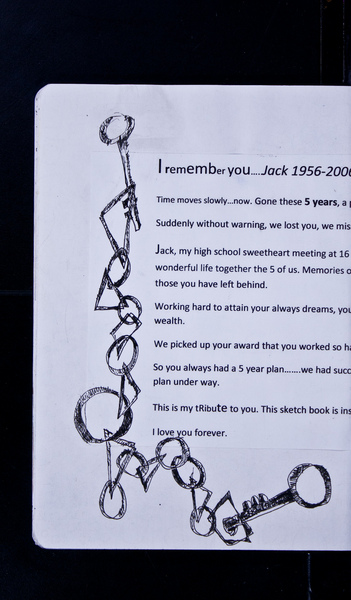 I remember you.....Jack 1956-2006
Time moves slowly...now. Gone these 5 years, a
Suddenly without warning, we lost you, we mis
Jack, my high school sweetheart meeting at 16
wonderful life together the 5 of us. Memories o
those you have left behind.
Working hard to attain your always dreams, you
wealth.
We picked up your award that you worked so ha
So you always had a 5 year plan.......we had succ
plan under way.
This is my tRibute to you. This sketch book is ins
I love you forever.